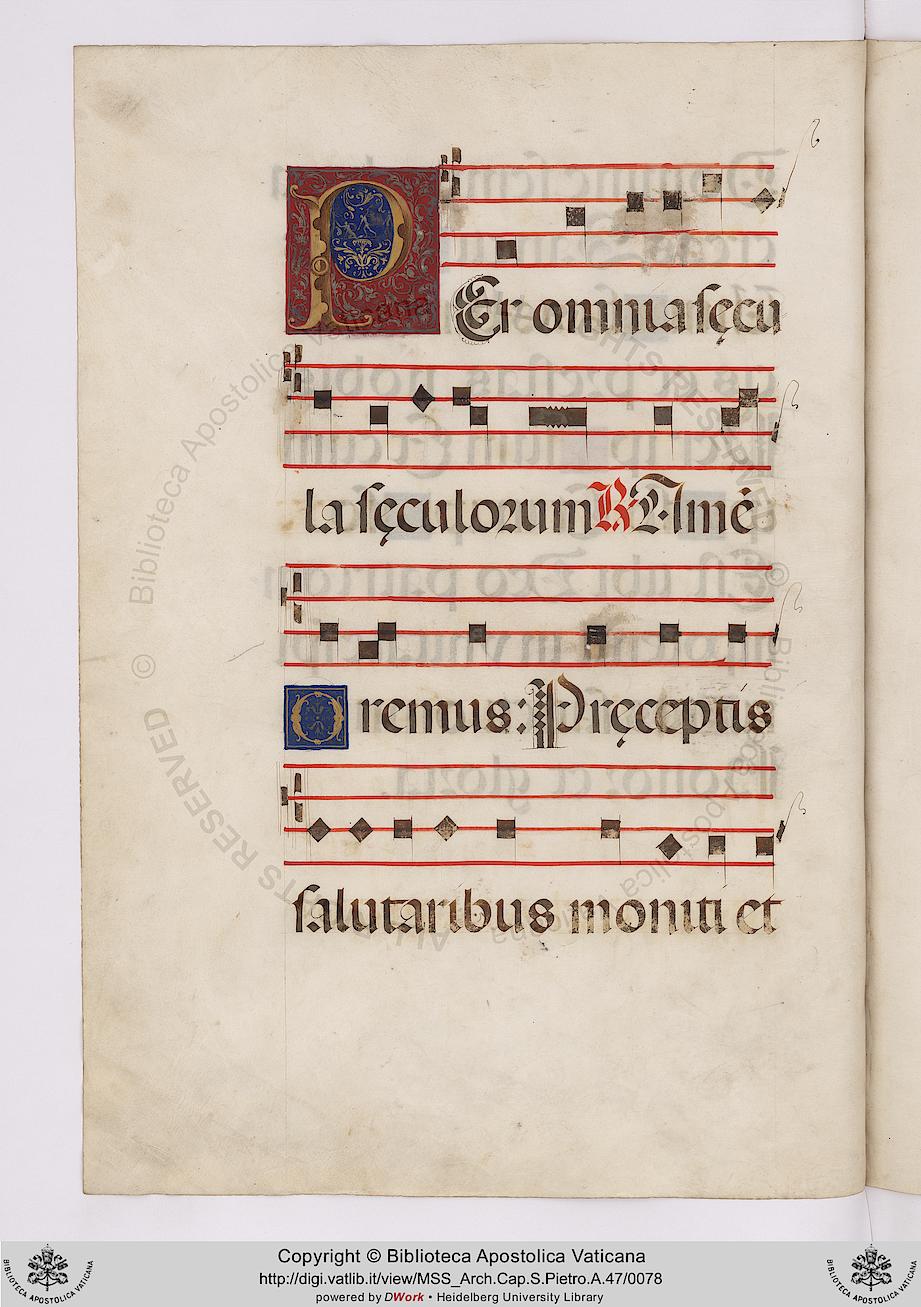 PEr omnia sęcu
la sęculorum ℟ Amē
Oremus: Pręceptis
salutaribus moniti et
Biblioteca Apostolica Vaticana
ALL RIGHTS RESERVED
©
Copyright © Biblioteca Apostolica Vaticana
http://digi.vatlib.it/view/MSS_Arch.Cap.S.Pietro.A.47/0078
powered by DWork • Heidelberg University Library
BIBLIOTECA APOSTOLICA VATICANA
BIBLIOTECA APOSTOLICA VATICANA